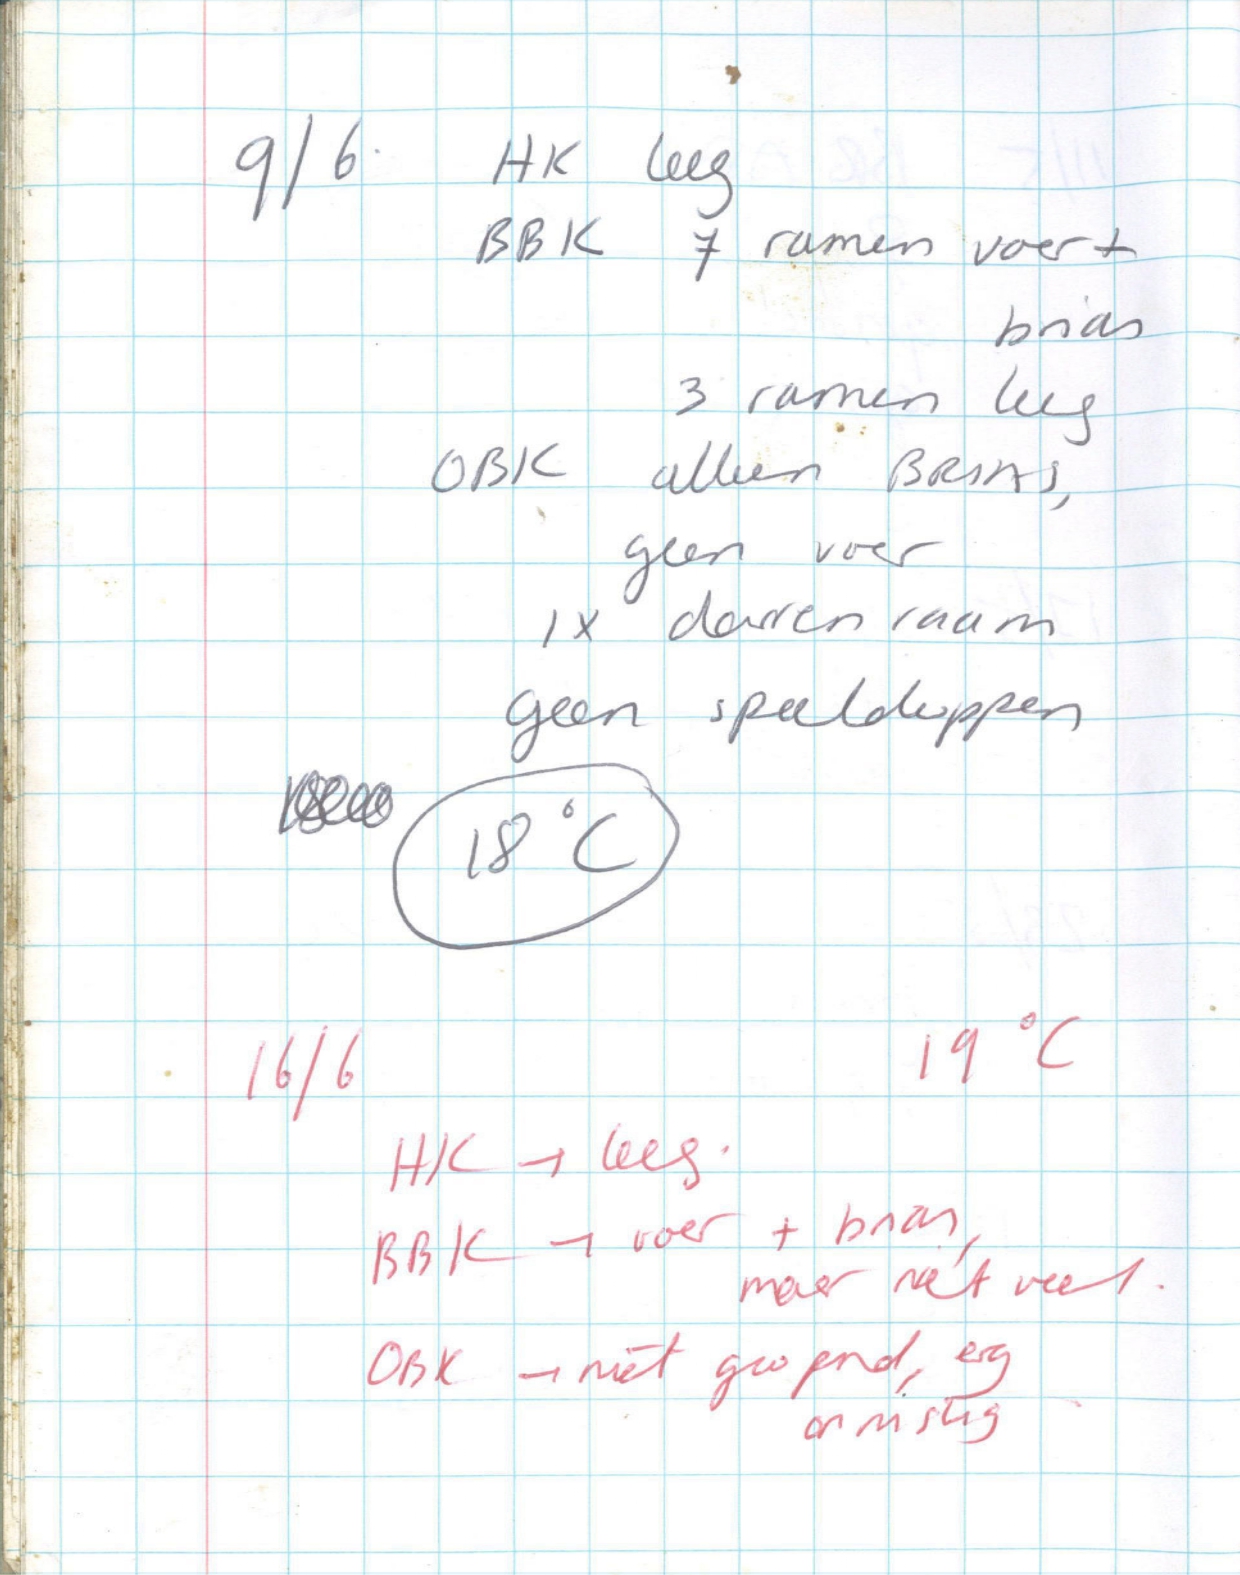 9/6. HK leeg
BBK 7 ramen voer +
brias
3 ramen leeg
OBK alleen BRIAS,
geen voer
1x darrenraam
geen speeldoppen
18 °C
16/6 19 °C
HK → leeg.
BBK → voer + brias,
maar niet veel.
OBK → niet geopend, erg
onrustig